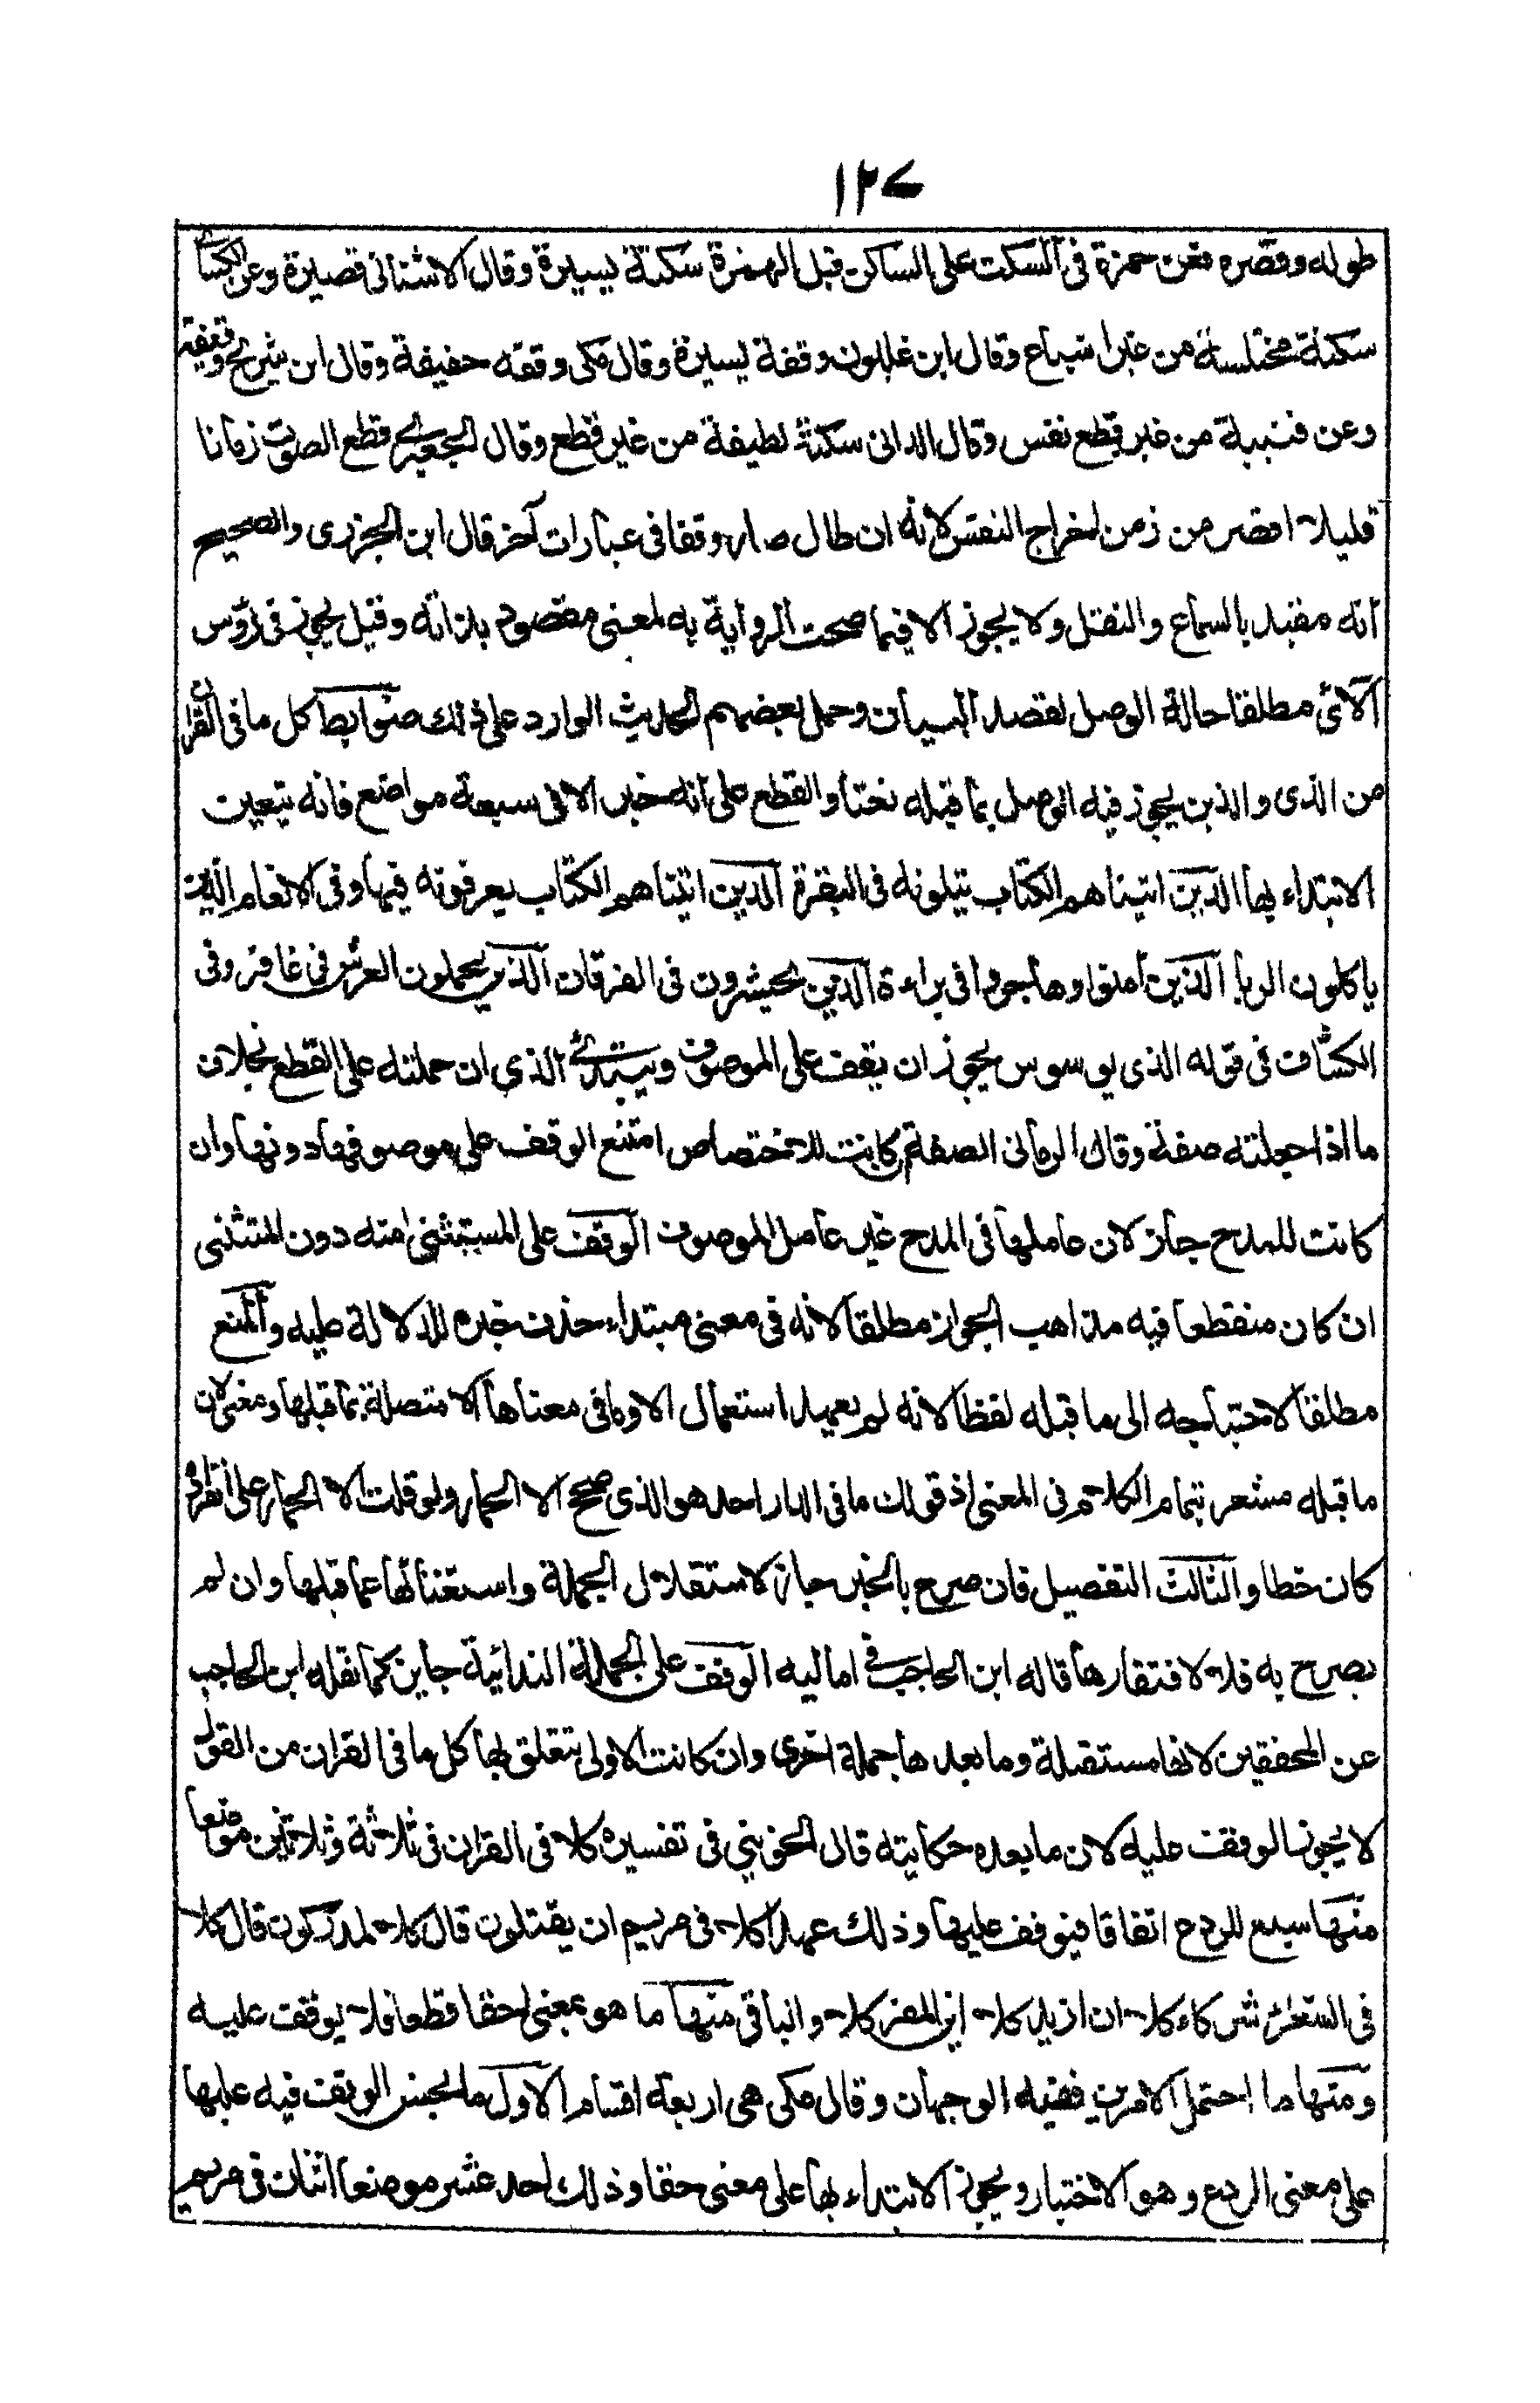 ١٢٧
طوله وقصره فعن حمزة فى السكت على الساكن قبل الهمزة سكتة يسيرة وقال الاشنانى قصيرة وعن الكسائى
سكتة مختلسة من غير اشباع وقال ابن غلبون وقفة يسيرة وقال مكى وقفه خفيفة وقال ابن شريح وقيفة
وعن قتيبة من غير قطع نفس وقال الدانى سكتة لطيفة من غير قطع وقال الجعبرى قطع الصوت زمانا
قليلا اقصر من زمن اخراج النفس لانه ان طال صار وقفا فى عبارات آخر قال ابن الجزرى والصحيح
انه مقيد بالسماع والنقل ولا يجوز الا فيما صحت الرواية به لمعنى مقصود بذاته وقيل يجوز فى رؤس
الآئ مطلقا حالة الوصل لقصد البيان وحمل بعضهم الحديث الوارد على ذلك ضوابط كل ما فى القران
من الذى والذين يجوز فيه الوصل بما قبله نعتا والقطع على انه خبر الا فى سبعة مواضع فانه يتعين
الابتداء بها الذين اتيناهم الكتاب يتلونه فى البقرة الذين اتيناهم الكتاب يعرفونه فيها وفى الانعام الذين
ياكلون الربا الذين امنوا وهاجروا فى براءة الذين يحشرون فى الفرقان الذين يحملون العرش فى غافر وفى
الكشاف فى قوله الذى يوسوس يجوز ان يقف على الموصوف ويبتدئ الذى ان حملته على القطع بخلاف
ما اذا جعلته صفة وقال الرمانى الصفة كانت للاختصاص امتنع الوقف على موصوفها دونها وان
كانت للمدح جاز لان عاملها فى المدح غير عامل الموصوف الوقف على المستثنى منه دون المتثنى
ان كان منقطعا فيه مذاهب الجواز مطلقا لانه فى معنى مبتداء حذف خبره للدلالة عليه والمنع
مطلقا لاحتياجه الى ما قبله لفظا لانه لم يعهد استعمال الا وما فى معناها الا متصلة بما قبلها ومعنى لان
ما قبله مشعر بتمام الكلام فى المعنى اذ قولك ما فى الدار احد هو الذى صحح الا الحمار ولو قلت الا الحمار على انفراده
كان خطا والثالث التفصيل فان صرح بالخبر جاز لاستقلال الجملة واستغنائها عما قبلها وان لم
يصرح به فلا لافتقارها قاله ابن الحاجب فى اماليه الوقف على الجملة الندائية جايز كما نقله ابن الحاجب
عن المحققين لانها مستقلة وما بعدها جملة اخرى وان كانت الاولى تتعلق بها كل ما فى القران من القول
لا يجوز الوقف عليه لان ما بعده حكايته قال الجوينى فى تفسيره كلا فى القران فى ثلاثة وثلاثين موضعا
منها سبع للردع اتفاقا فيوقف عليها وذلك عهدا كلا فى مريم ان يقتلون قال كلا لمدركون قال كلا
فى الشعراء شركاء كلا ان ازيد كلا اين المفر كلا والباقى منها ما هو بمعنى حقا قطعا فلا يوقف عليه
ومنها ما احتمل الامرين ففيه الوجهان وقال مكى هى اربعة اقسام الاول ما يحسن الوقف فيه عليها
على معنى الردع وهو الاختيار ويجوز الابتداء بها على معنى حقا وذلك احد عشر موضعا اثنان فى مريم